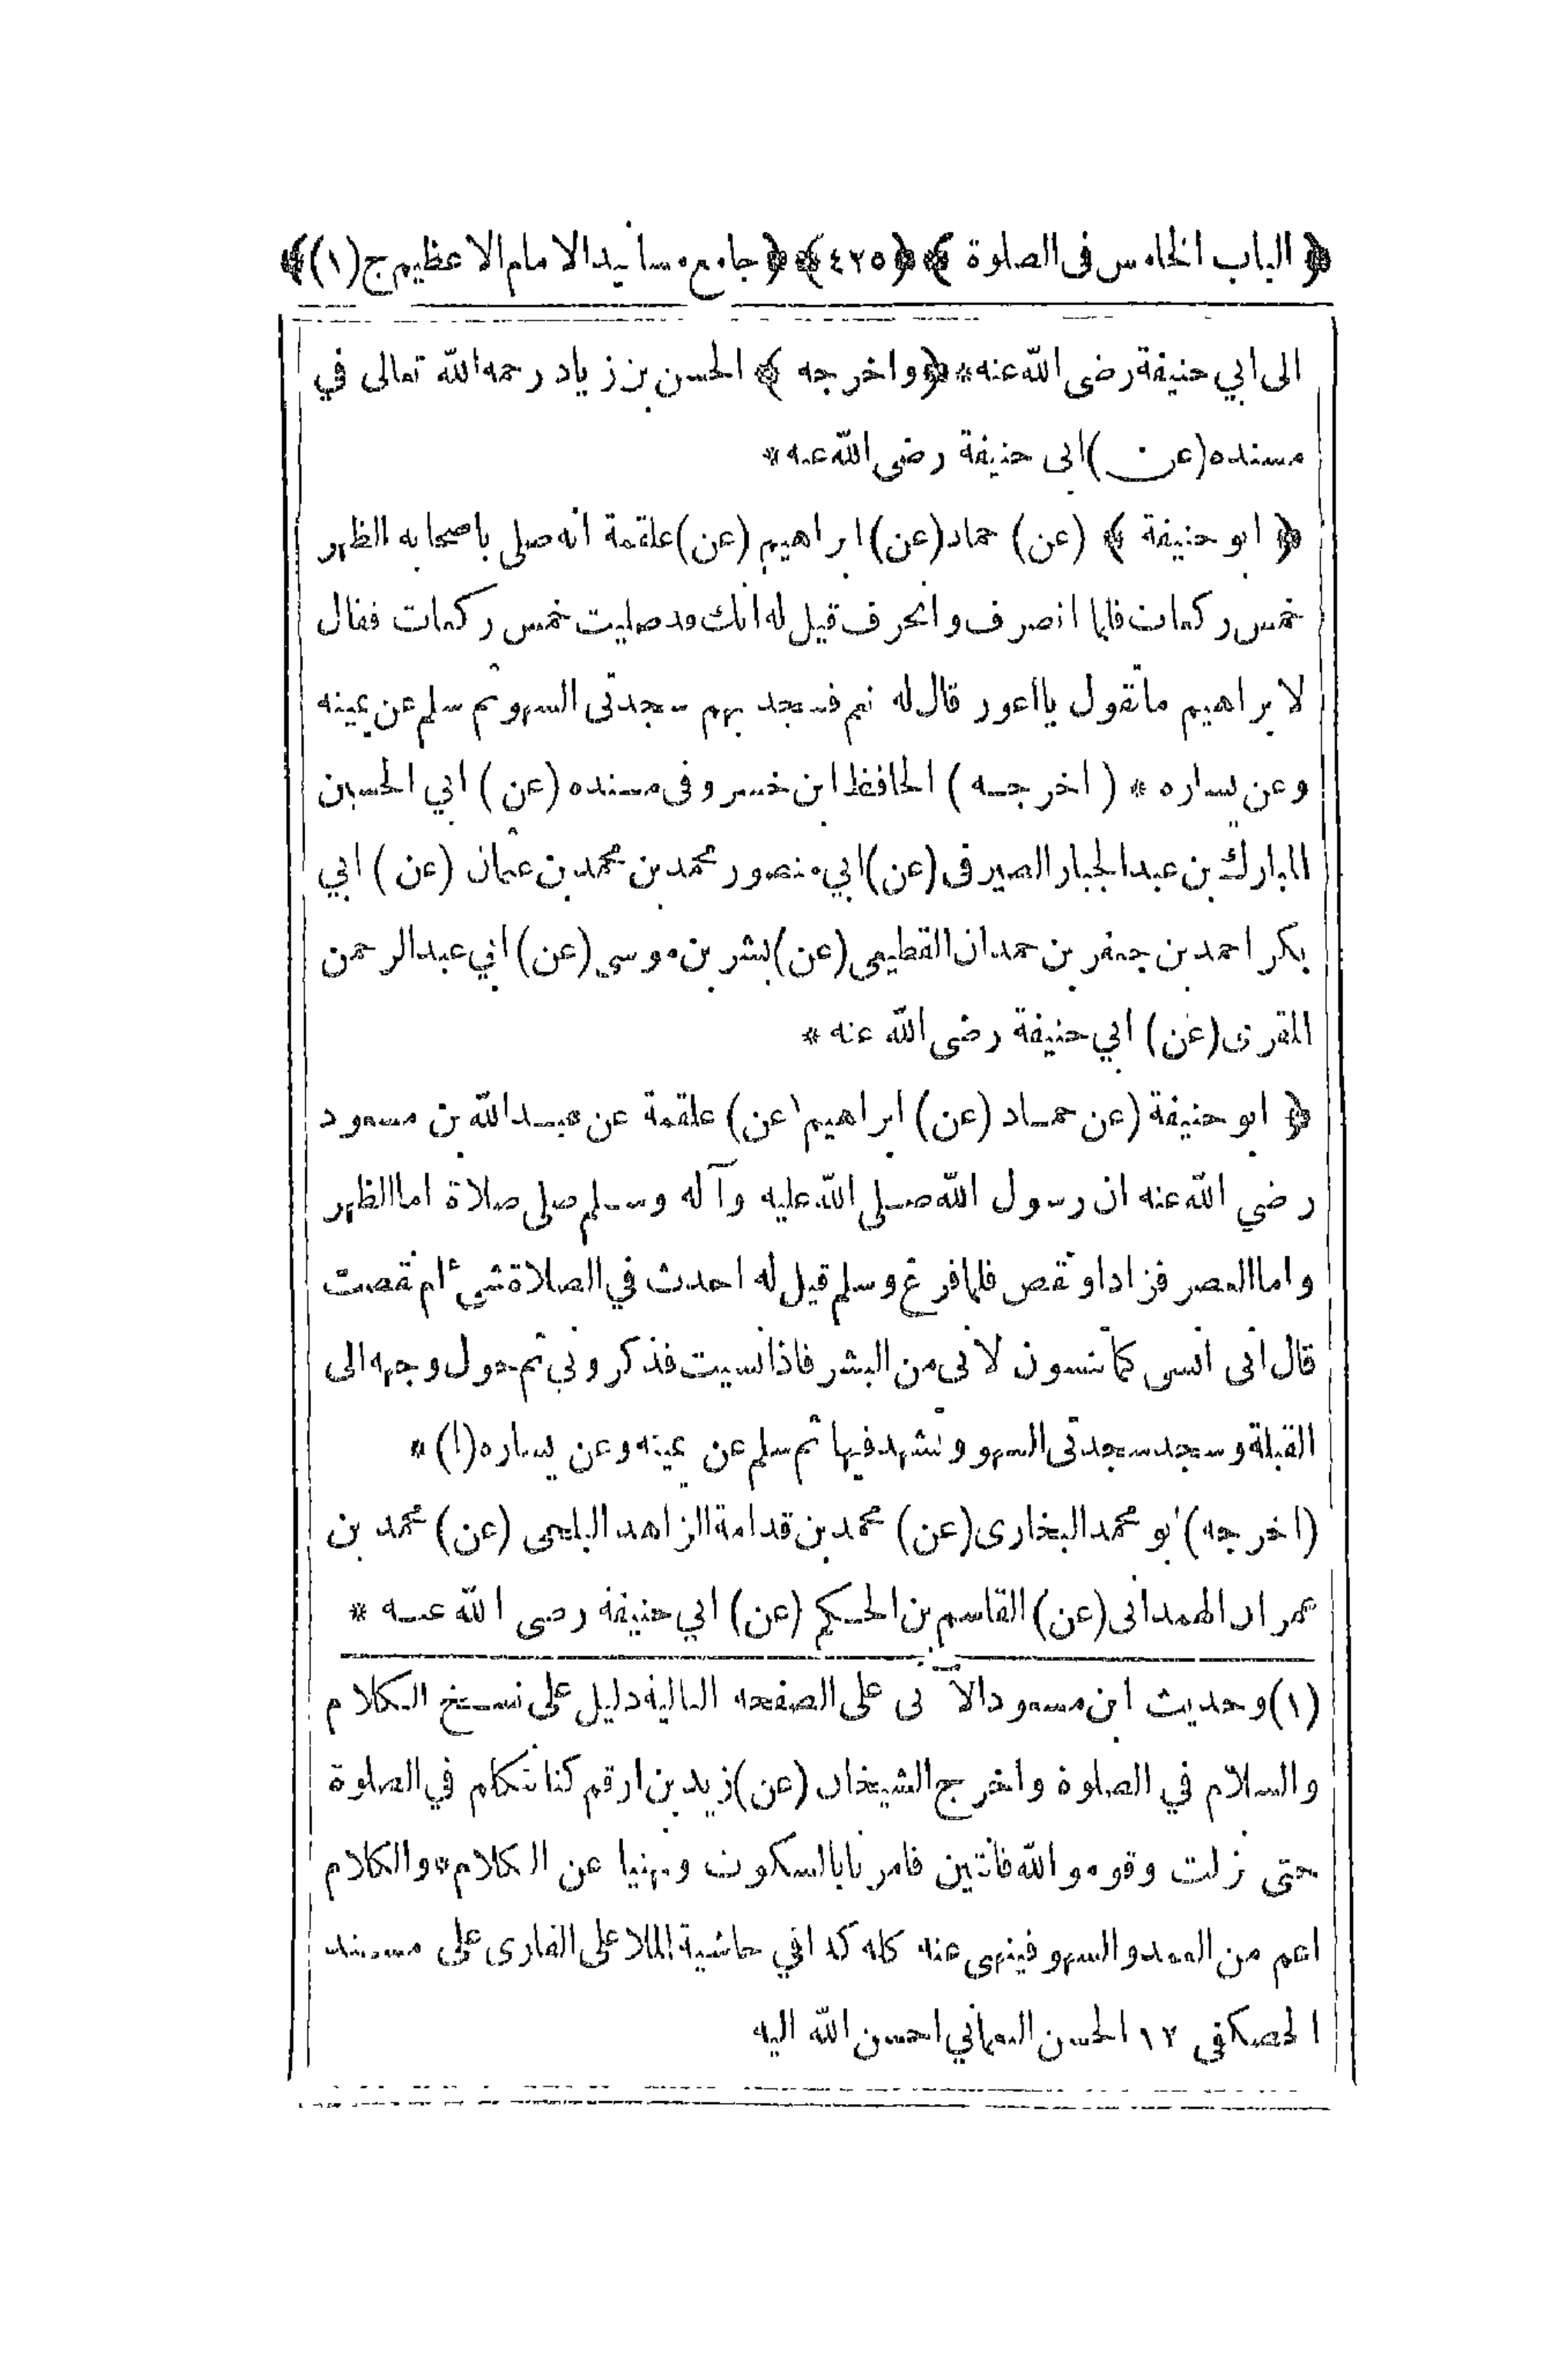 ﴿ الباب الخامس فى الصلوة ﴾ ﴿٤٢٥﴾ ﴿ جامع مسانيد الامام الاعظم ج(١) ﴾
الى ابي حنيفة رضى الله عنه * ﴿ واخرجه ﴾ الحسن بن زياد رحمه الله تعالى في
مسنده (عن) ابى حنيفة رضى الله عنه *
﴿ ابو حنيفة ﴾ (عن) حماد (عن) ابراهيم (عن) علقمة انه صلى باصحابه الظهر
خمس ركعات فلما انصرف وانحرف قيل له انك قد صليت خمس ركعات فقال
لابراهيم ما تقول يا اعور قال له نعم فسجد بهم سجدتى السهو ثم سلم عن يمينه
وعن يساره * ( اخرجه ) الحافظ ابن خسرو فى مسنده (عن) ابي الحسين
المبارك بن عبد الجبار الصيرفى (عن) ابي منصور محمد بن محمد بن عثمان (عن) ابي
بكر احمد بن جعفر بن حمدان القطيعى (عن) بشر بن موسى (عن) ابي عبد الرحمن
المقرى (عن) ابي حنيفة رضى الله عنه *
﴿ ابو حنيفة (عن حماد (عن) ابراهيم (عن) علقمة عن عبد الله بن مسعود
رضي الله عنه ان رسول الله صلى الله عليه وآله وسلم صلى صلاة اما الظهر
واما العصر فزاد او نقص فلما فرغ وسلم قيل له احدث في الصلاة شىء ام نقصت
قال انى انسى كما تنسون لانى من البشر فاذا نسيت فذكروني ثم حول وجهه الى
القبلة وسجد سجدتى السهو وتشهد فيها ثم سلم عن يمينه وعن يساره (١) *
(اخرجه) ابو محمد البخارى (عن) محمد بن قدامة الزاهد البلخى (عن) محمد بن
عمران الهمدانى (عن) القاسم بن الحكم (عن) ابي حنيفة رضى الله عنه *
(١) وحديث ابن مسعود الآتى على الصفحه التاليه دليل على نسخ الكلام
والسلام في الصلوة واخرج الشيخان (عن) زيد بن ارقم كنا نتكلم في الصلوة
حتى نزلت وقوموا لله قانتين فامرنا بالسكوت ونهينا عن الكلام * والكلام
اعم من العمد والسهو فينهى عنه كله كذا في حاشية الملا على القارى على مسند
الحصكفى ١٢ الحسن النعماني احسن الله اليه